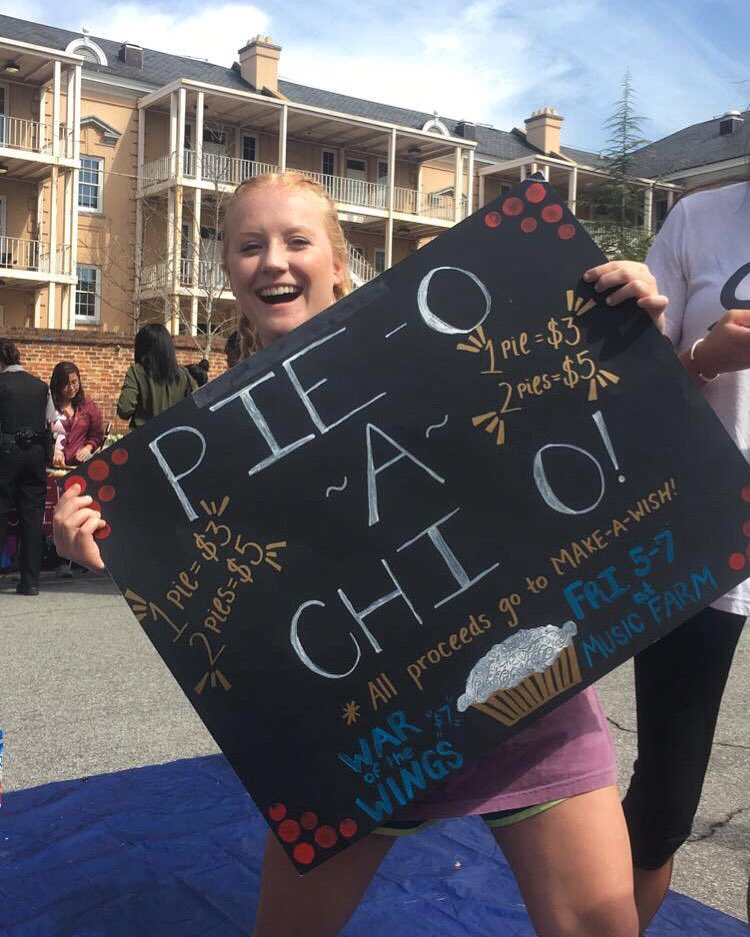 PIE-O
~A~
CHI O!
1 PIE = $3
2 PIES = $5
1 PIE = $3
2 PIES = $5
* All proceeds go to MAKE-A-WISH!
WAR "$7"
of the
WINGS
FRI 5-7
at
MUSIC FARM